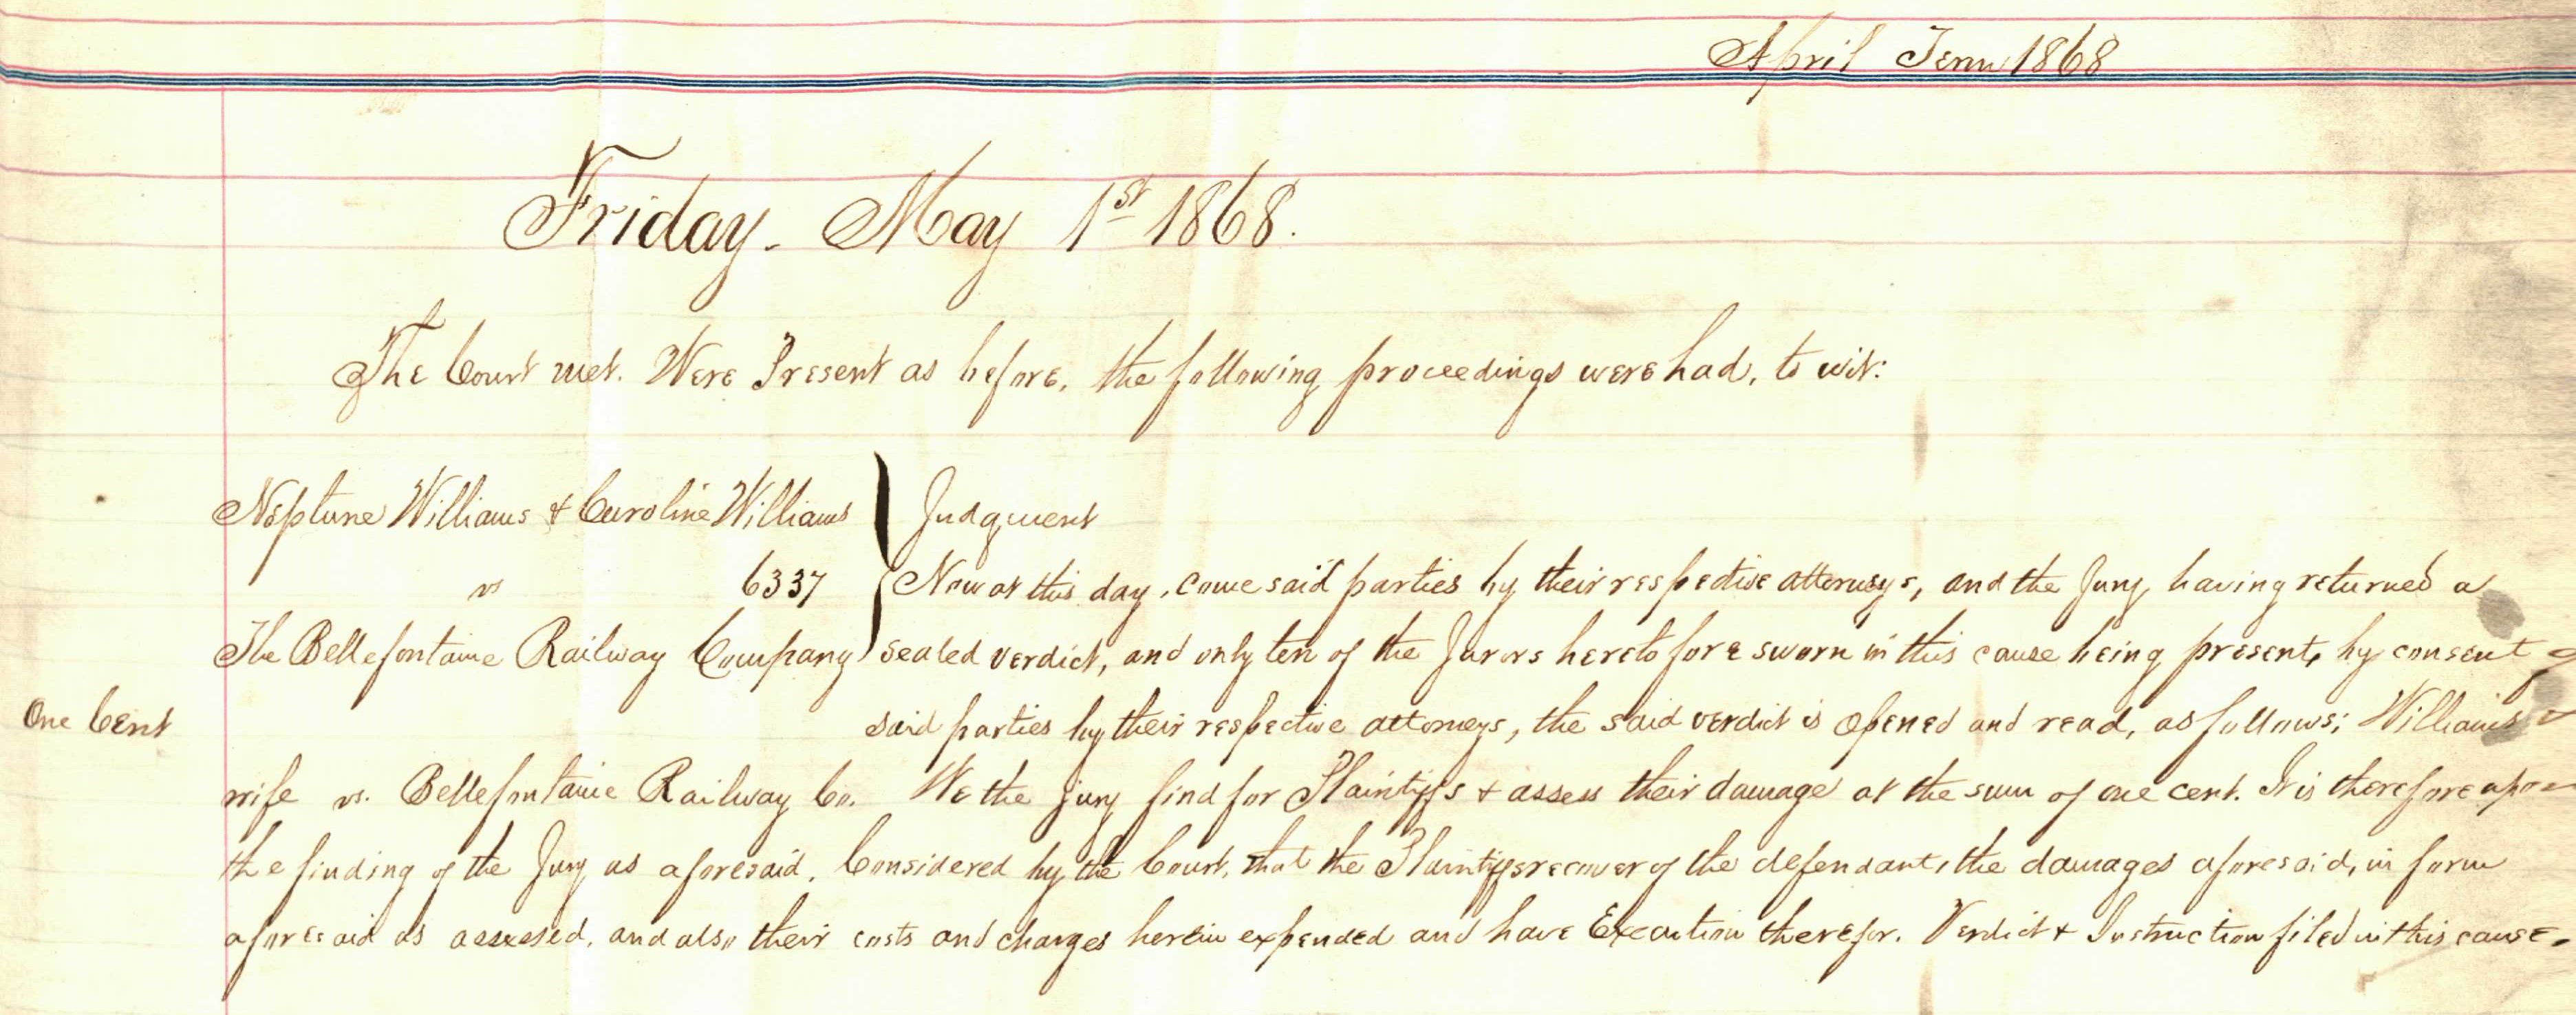 April Term 1868
Friday. May 1st 1868.
The Court met. Were Present as before, the following proceedings were had, to wit:
Neptune Williams & Caroline Williams } Judgment
vs 6337 Now at this day, come said parties by their respective attorneys, and the Jury having returned a
The Bellefontaine Railway Company sealed verdict, and only ten of the Jurors heretofore sworn in this cause being present, by consent of
One Cent said parties by their respective attorneys, the said verdict is opened and read, as follows; Williams &
wife vs. Bellefontaine Railway Co. We the jury find for Plaintiffs & assess their damage at the sum of one cent. It is therefore upon
the finding of the Jury as aforesaid. Considered by the Court, that the Plaintiffs recover of the defendant, the damages aforesaid, in form
aforesaid as assessed, and also their costs and charges herein expended and have Execution therefor. Verdict & Instruction filed in this cause.